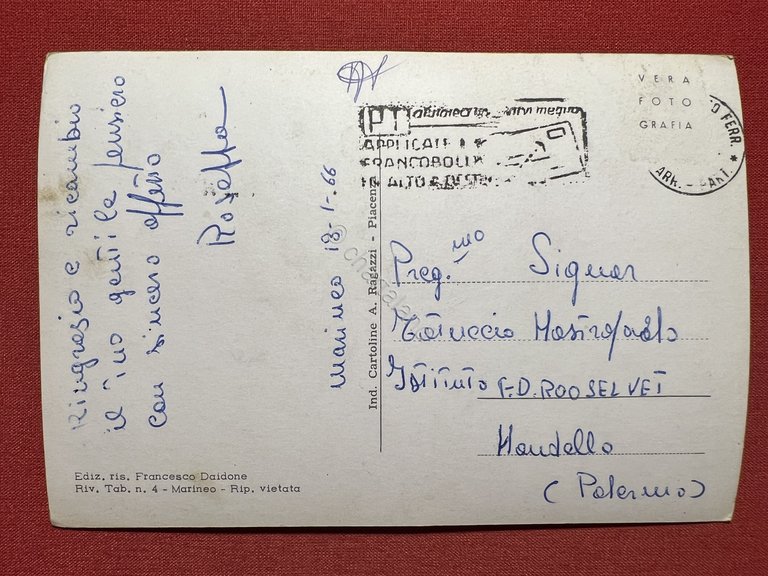 Ringrazio e ricambio
il tuo gentile pensiero
con sincero affetto
Rosetta
Marineo 18-1-.66
Ind. Cartoline A. Ragazzi - Piacenza
PT
APPLICATE
FRANCOBOLLI
IN ALTO A DESTRA
VERA
FOTO
GRAFIA
FERR.
ARR. - PART.
Preg.mo Signor
Mastropaolo
Istituto F.D. ROOSELVET
Mondello
(Palermo)
Ediz. ris. Francesco Daidone
Riv. Tab. n. 4 - Marineo - Rip. vietata